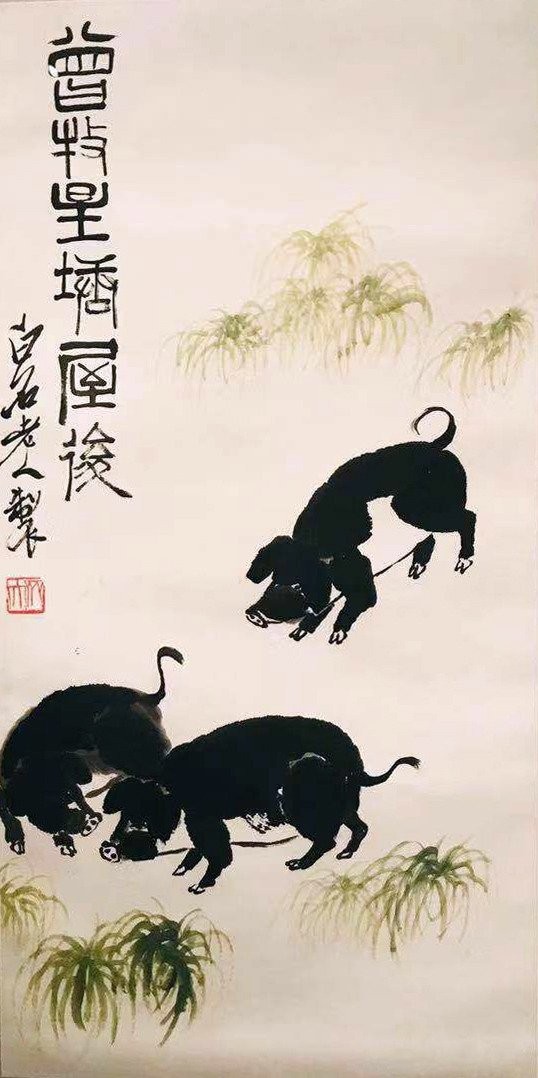 曾牧星塘屋後
白石老人製